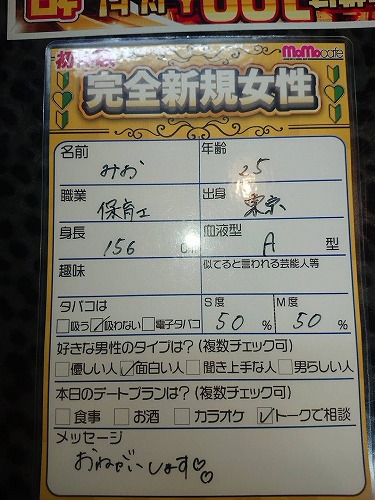 MoMocafe
完全新規女性
名前 みお 年齢 25
職業 保育士 出身 東京
身長 156 cm 血液型 A 型
趣味 似てると言われる芸能人等
タバコは S度 M度
□吸う ☑吸わない □電子タバコ 50 % 50 %
好きな男性のタイプは?(複数チェック可)
□優しい人 ☑面白い人 □聞き上手な人 □男らしい人
本日のデートプランは?(複数チェック可)
□食事 □お酒 □カラオケ ☑トークで相談
メッセージ
おねがいします♡♡